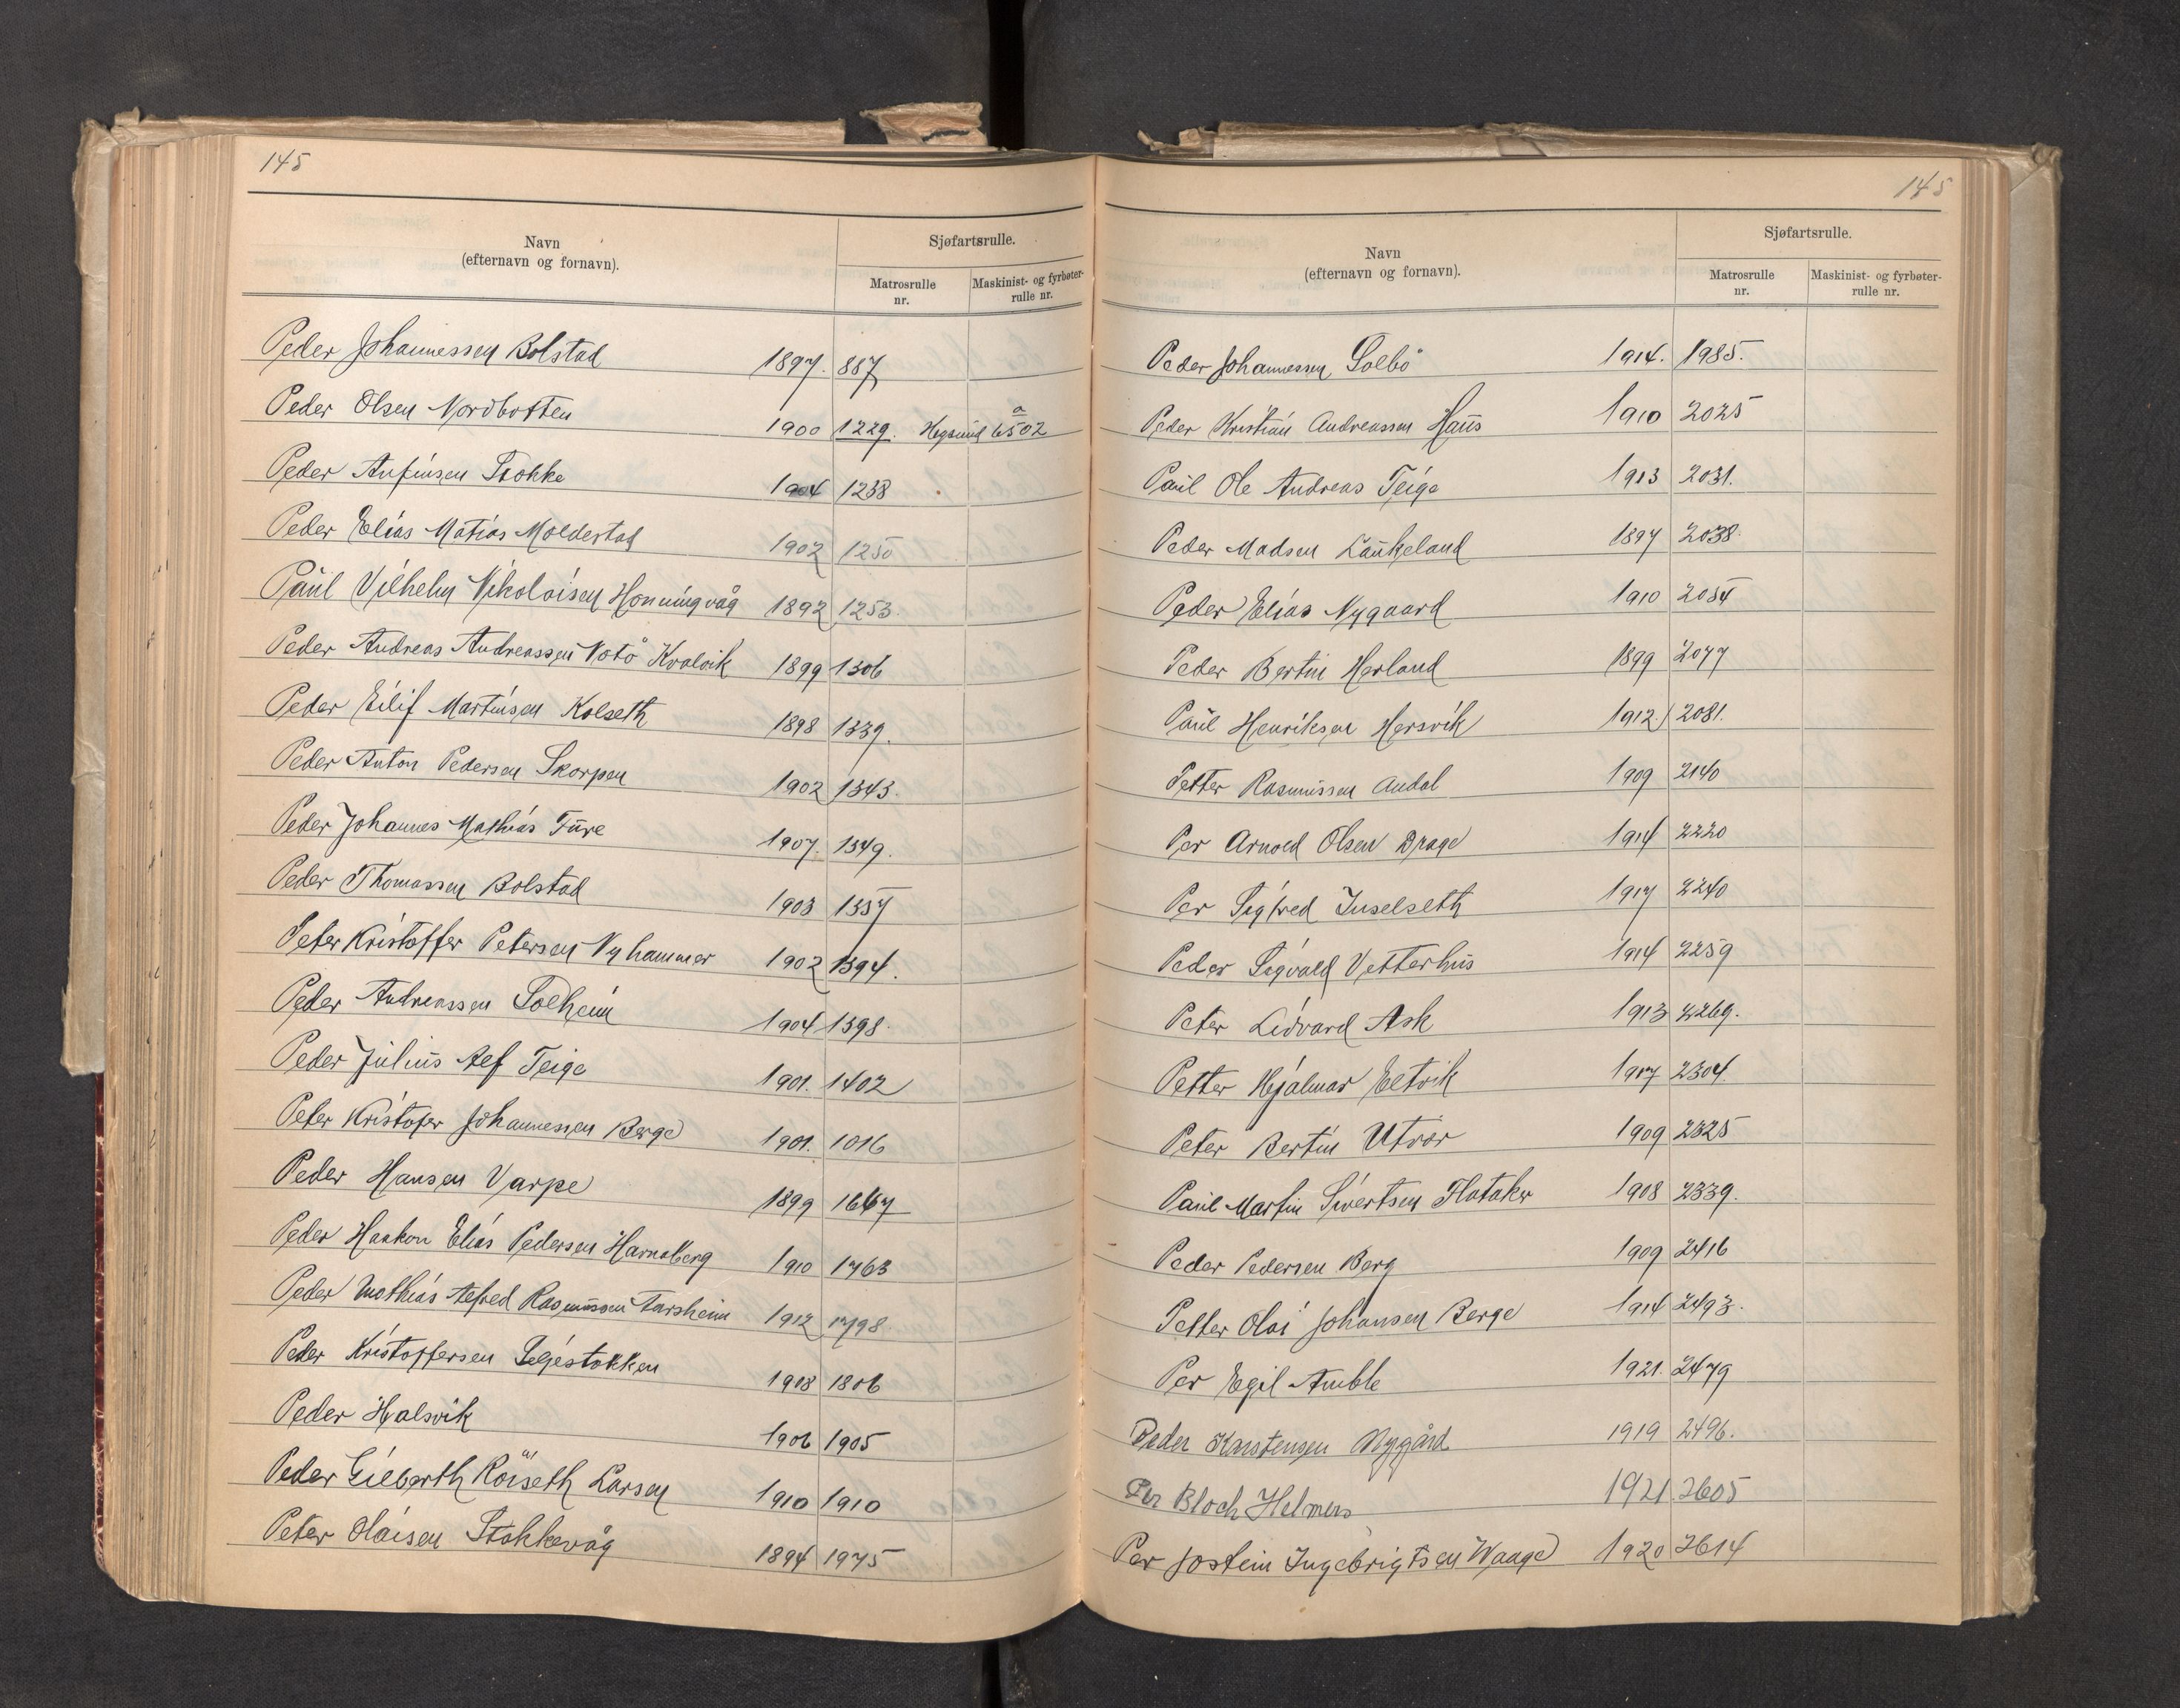 145
Navn
(efternavn og fornavn).
Sjøfartsrulle.
Matrosrulle
nr.
Maskinist- og fyrbøter-
rulle nr.
Peder Johannessen Bolstad 1897. 887
Peder Olsen Nordbotten 1900 1229. Hegsund a 6502
Peder Anfinsen Stokke 1904 1238
Peder Elias Matias Moldestad 1902 1250
Paul Vilhelm Nikolaisen Honningvåg 1892 1253.
Peder Andreas Andreassen Kvalvik 1899 1306
Peder Eilif Martinsen Kolseth 1898 1339.
Peder Anton Pedersen Skorpen 1902 1343.
Peder Johannes Mathias Fure 1907. 1349.
Peder Thomassen Bolstad 1903 1357
Peter Kristoffer Petersen Nyhammer 1902 1394.
Peder Andreassen Solheim 1904 1398.
Peder Julius Alf Teige 1901. 1402
Peter Kristofer Johannessen Berge 1901. 1016
Peder Hansen Varpe 1899 1667
Peder Haakon Elias Pedersen Hamaberg 1910 1763
Peder Mathias Alfred Rasmussen Tarsheim 1912 1798.
Peder Kristoffersen Seljestokken 1908 1806
Peder Halsvik 1906 1905
Peder Gilberth Röiseth Larsen 1910 1910
Peter Olaisen Stokkevåg 1894 1975
145
Navn
(efternavn og fornavn).
Sjøfartsrulle.
Matrosrulle
nr.
Maskinist- og fyrbøter-
rulle nr.
Peder Johannessen Solbö 1914. 1985.
Peder Kristian Andreassen Haus 1910 2025
Paul Ole Andreas Teige 1913 2031.
Peder Madsen Laukeland 1897 2038.
Peder Elias Nygaard 1910 2054
Peder Bertin Herland 1899 2077
Paul Henriksen Hersvik 1912. 2081.
Petter Rasmussen Andal 1909 2140
Per Arnold Olsen Drage 1914 2220
Per Sigfred Indselseth 1917 2240
Peder Sigvald Vetterhus 1914 2259
Peter Lidvard Ask 1913 2269.
Petter Hjalmar Eltvik 1917 2304.
Peter Bertin Utvær 1909 2325
Paul Martin Sivertsen Flataker 1908 2339.
Peder Pedersen Berg 1909 2416
Petter Olai Johansen Berge 1914 2493.
Per Egil Amble 1921. 2479
Peder Karstensen Nygård 1919 2496.
Per Bloch Helmers 1921 2605
Per Jostein Ingebrigtsen Waage 1920 2614